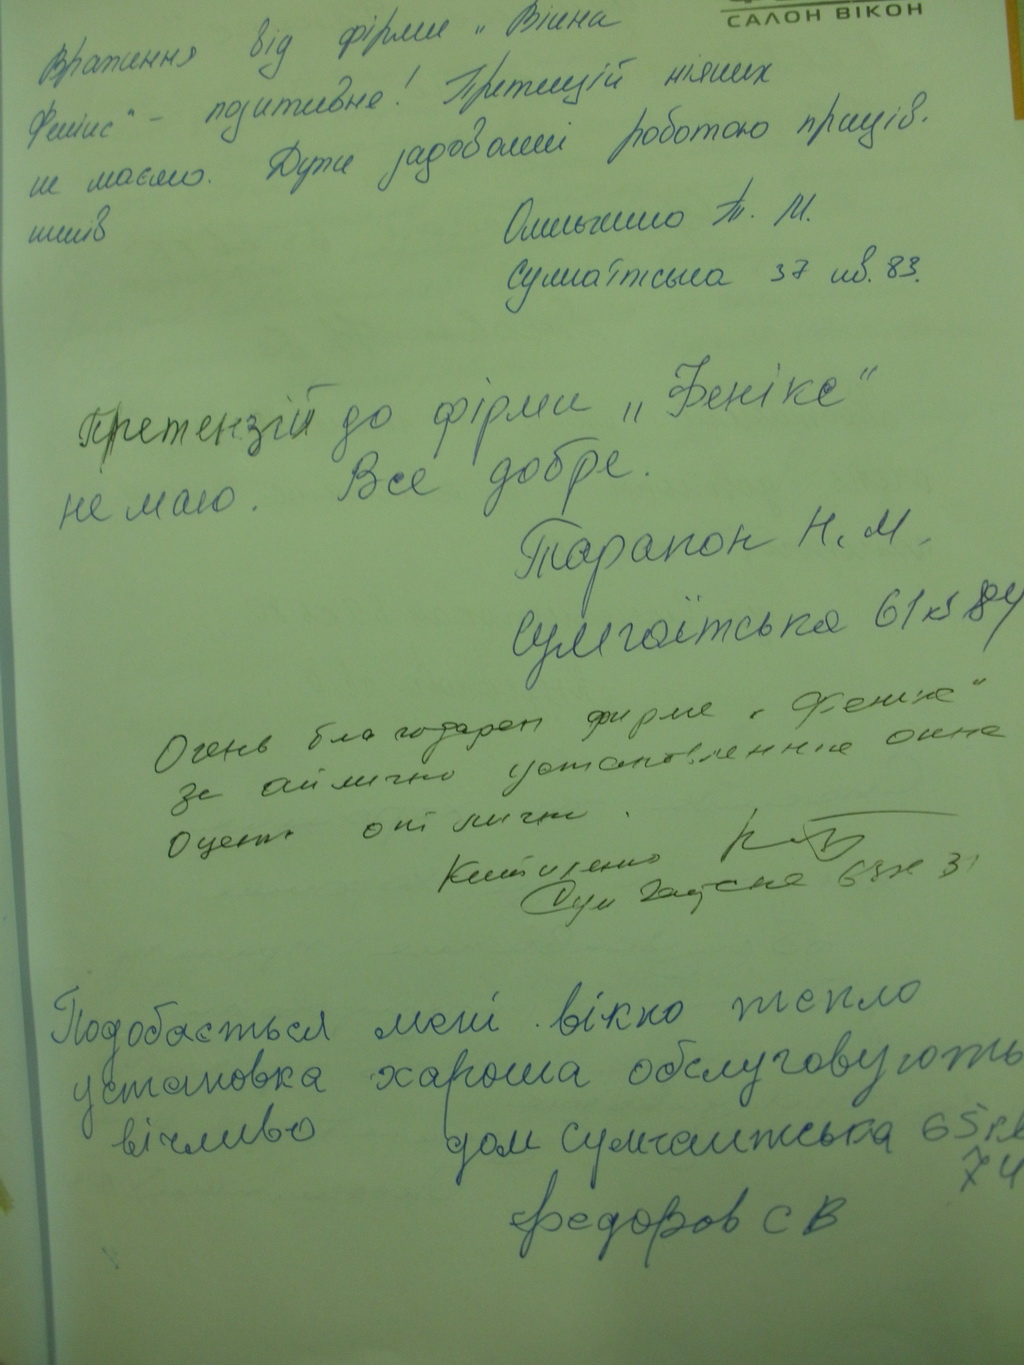 САЛОН ВІКОН
Враження від фірми „Вікна
Фенікс" - позитивне! Претензій ніяких
не маємо. Дуже задоволені роботою праців.
ників
Т. М.
Сумгаїтська 37 кв. 83.
Претензій до фірми „Фенікс"
не маю. Все добре.
Тарапон Н. М.
Сумгаїтська 61 кв 84
Очень благодарен фирме „Фенікс"
за отлично установленные окна
Оценка отлично.
63
Подобається мені вікно тепло
установка хароша обслуговують
вічливо дом Сумгаитська 65 кв
74
Федоров С В